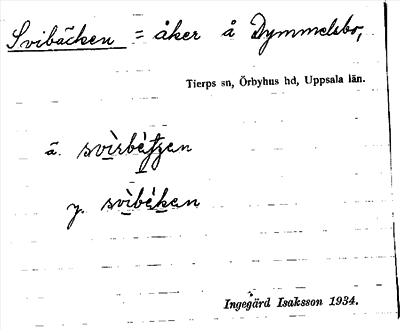 Svibäcken = åker å Dymmelsbo,
Tierps sn, Örbyhus hd, Uppsala län.
ä.
y. svìbèken
Ingegärd Isaksson 1934.